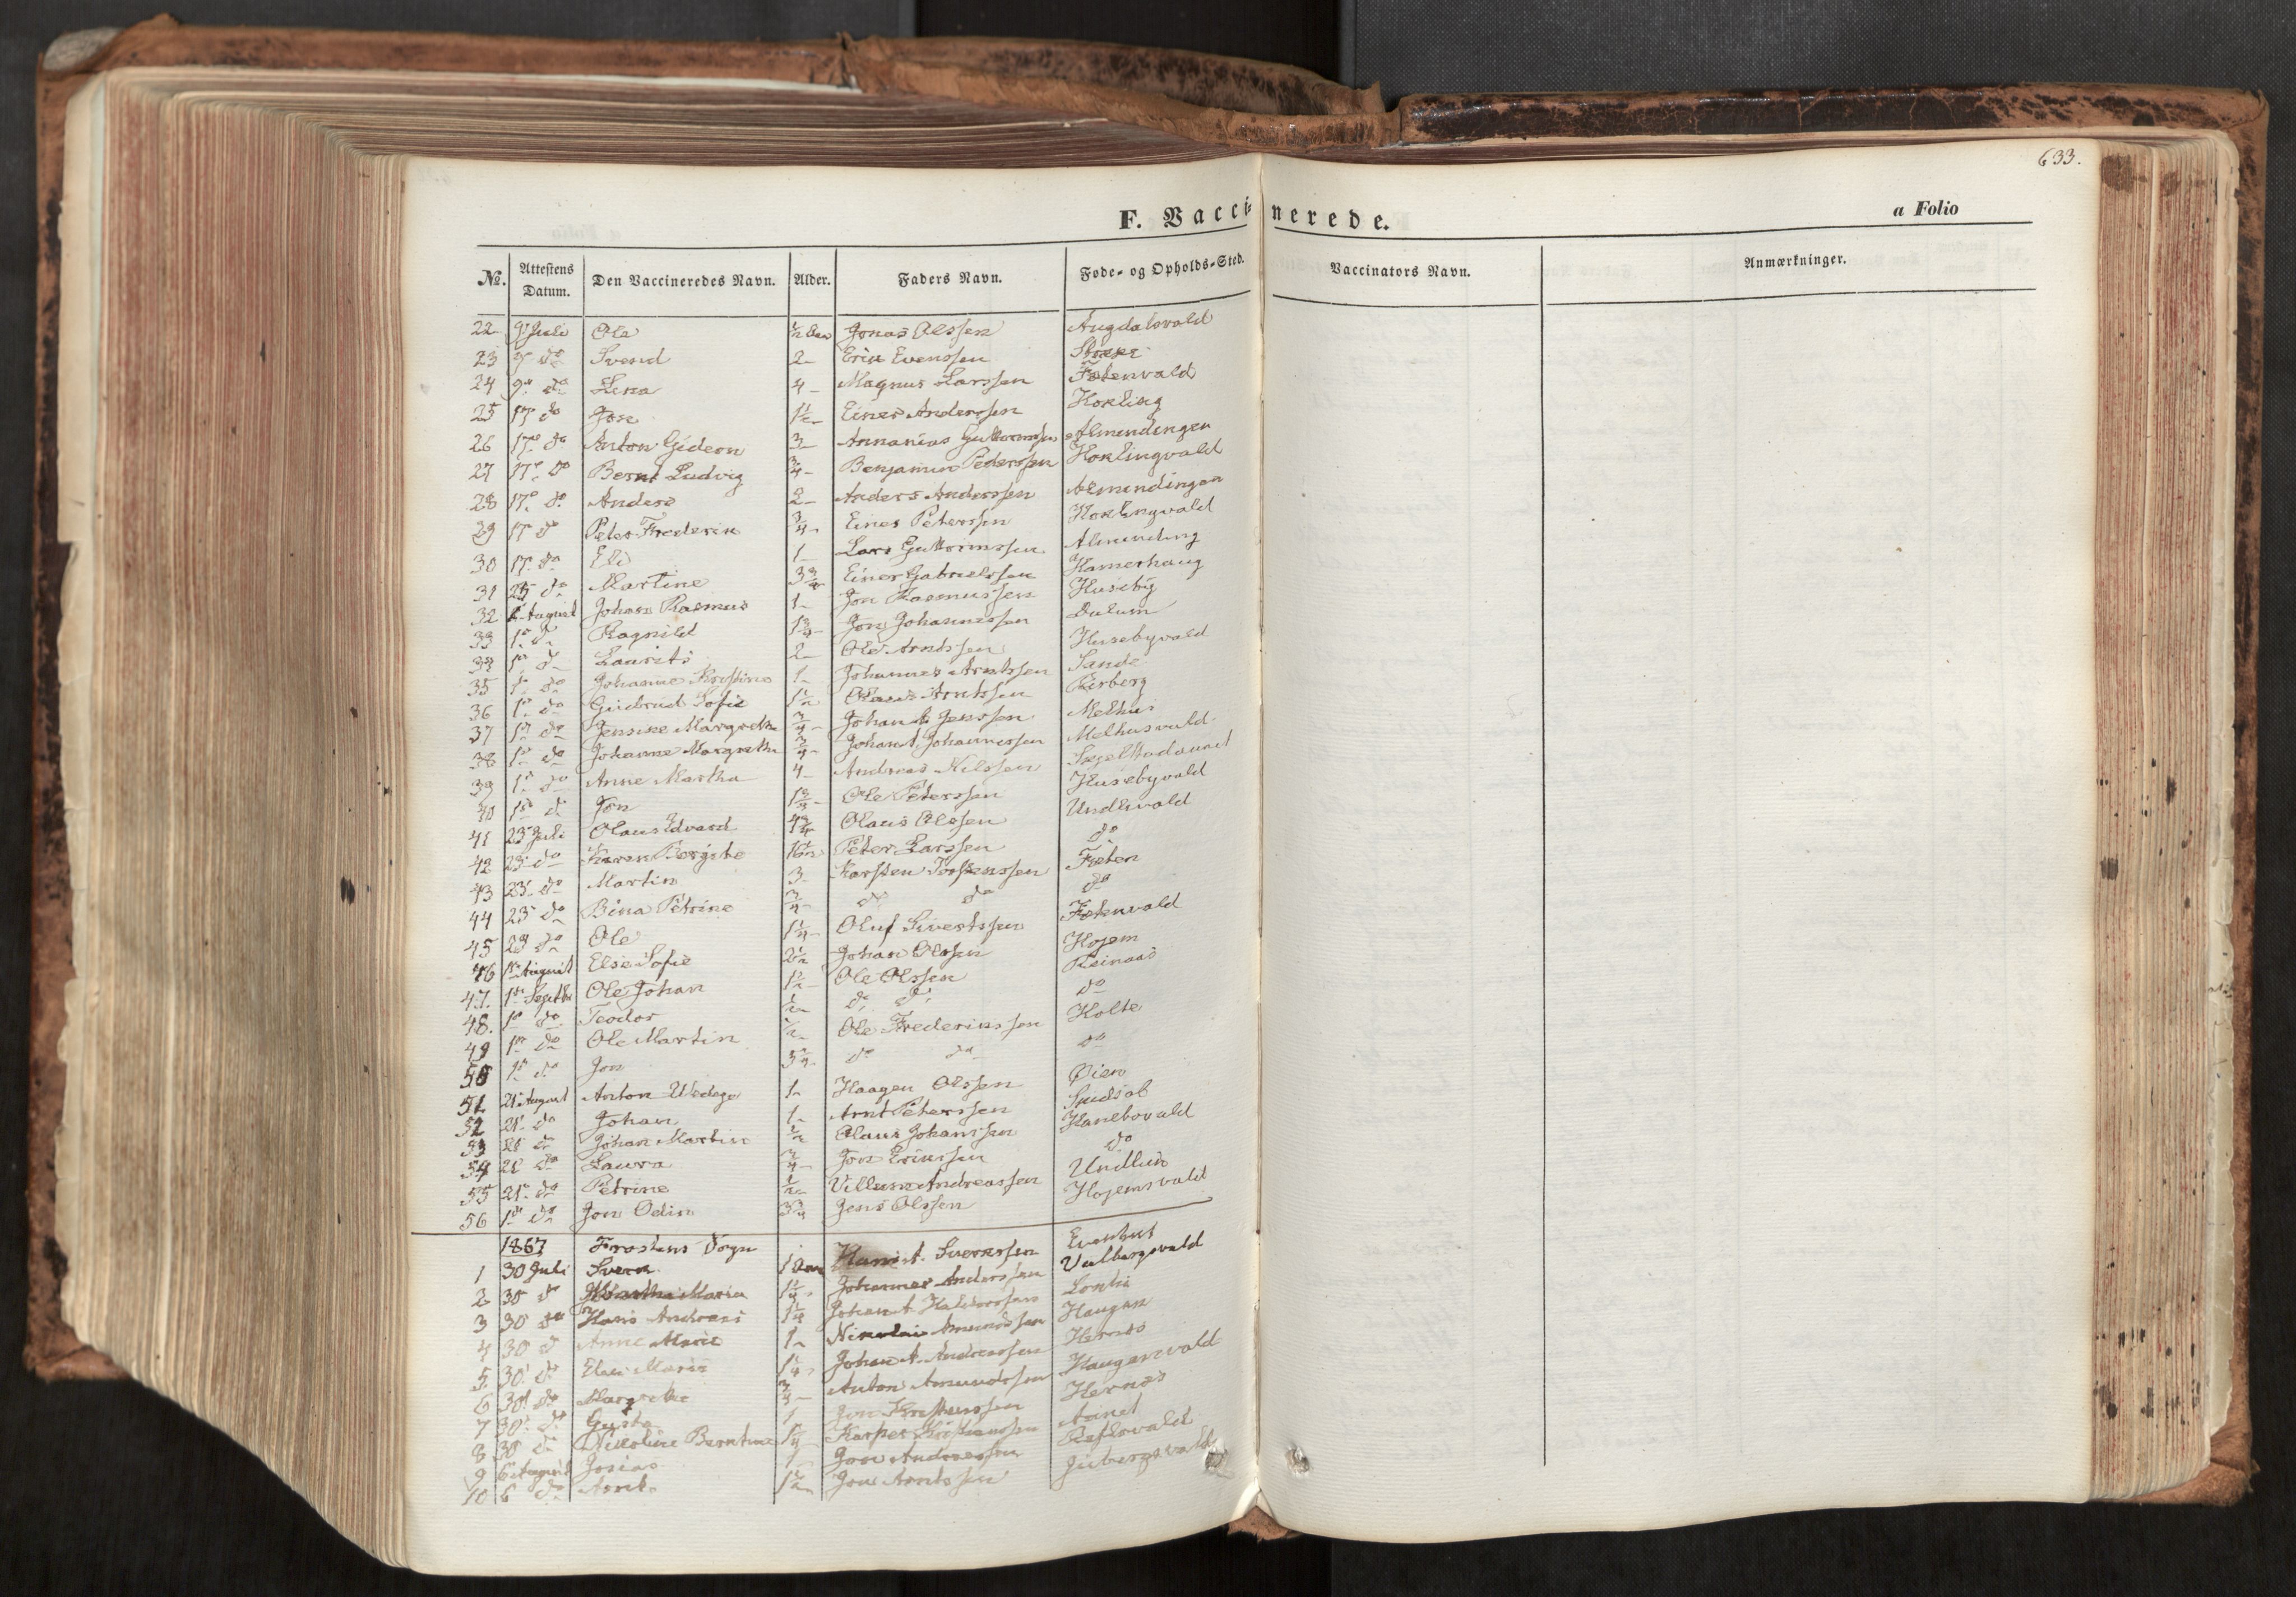 633.
F. Vaccinerede.
a Folio
No. Attestens Datum. Den Vaccineredes Navn. Alder. Faders Navn. Føde- og Opholds-Sted. Vaccinators Navn. Anmærkninger.
22 9 Juli Ole ½ Aar Jonas Olssen Augdalsvald
23 9 do Svend 2 Erik Evenssen
24 9 do Lena 4 Magnus Larssen Fætenvald
25 17 do Jon 1½ Einer Anderssen Hokling
26 17 do Anton Gideon 3 Annanias Guttormssen Almendingen
27 17 do Bernt Ludvig ¾ Benjamin Peterssen Hoklingvald
28 17 do Anders 2 Anders Anderssen Almendingen
29 17 do Peter Frederik ¾ Einer Peterssen Hoklingvald
30 17 do Eli 1 Lars Guttormssen Almending
31 25 do Martine 3¾ Einer Gabrielssen Hamerhaug
32 1 August Johan Rasmus 1 Jon Rasmussen Huseby
33 1 do Ragnild 1¾ Jon Johannessen Dalum
34 1 do Laurits 2 Ole Arntssen Husebyvald
35 1 do Johanne Kristine 1 Johannes Arntssen Sande
36 1 do Gudrud Sofie 1½ Olaus Arntssen
37 1 do Jensine Margrethe ¾ Johan A Jenssen Melhus
38 1 do Johanne Margrethe ¾ Johan A. Johannessen Melhusvald
39 1 do Anne Martha 4 Andreas Nilssen
40 1 do Jon 1¾ Ole Peterssen Husebyvald
41 23 Juli Olaus Edvard 4¾ Olaus Olssen Undlivald
42 23 do Karen Bergitte 16½ Peter Larssen do
43 23 do Martin 3 Karsten Torstenssen Fæten
44 23 do Bina Petrine ¾ do do do
45 23 do Ole 1¼ Oluf Sivertssen Fætenvald
46 1 August Else Sofie 2½ Johan Olssen Hojem
47. 1 Septbr Ole Johan 1½ Ole Olssen Reinaas
48. 1 do Teodor ½ do do do
49 1 do Ole Martin ½ Ole Frederikssen Holte
50 1 do Jon 3¾ do do do
51 21 August Anton Uldege 1 Haagen Olssen Øien
52 21 do Johan 1 Arnt Peterssen
53 21 do Johan Martin ½ Olaus Johanssen Hanebovald
54 21 do Laura ¾ Jon Erikssen do
55 21 do Petrine ½ Villum Andreassen Undlien
56 1 do Jon Odin 3¾ Jens Olssen Hojemsvald
1867 Frostens Sogn
1 30 Juli Sverk 1 Aar Hans A. Sverkssen Evenhus
2 30 do Martha Maria 1¼ Johannes Anderssen Valbergsvald
3 30 do Hans Andreas 1¼ Johan A.
4 30 do Anne Marie 1 Nikolai Amundssen Haugan
5 30 do Elen Marie 1¼ Johan A. Andreassen Hernæs
6 30 do Margrethe ¾ Anton Amundssen Hauganvald
7 30 do Gusta 1 Jon Hernæs
8 30 do Nikoline Berntine 1¼ Kasper Kristianssen
9 6 August Josias 1 Jon Andreassen
10 6 do 1½ Jon Arntssen